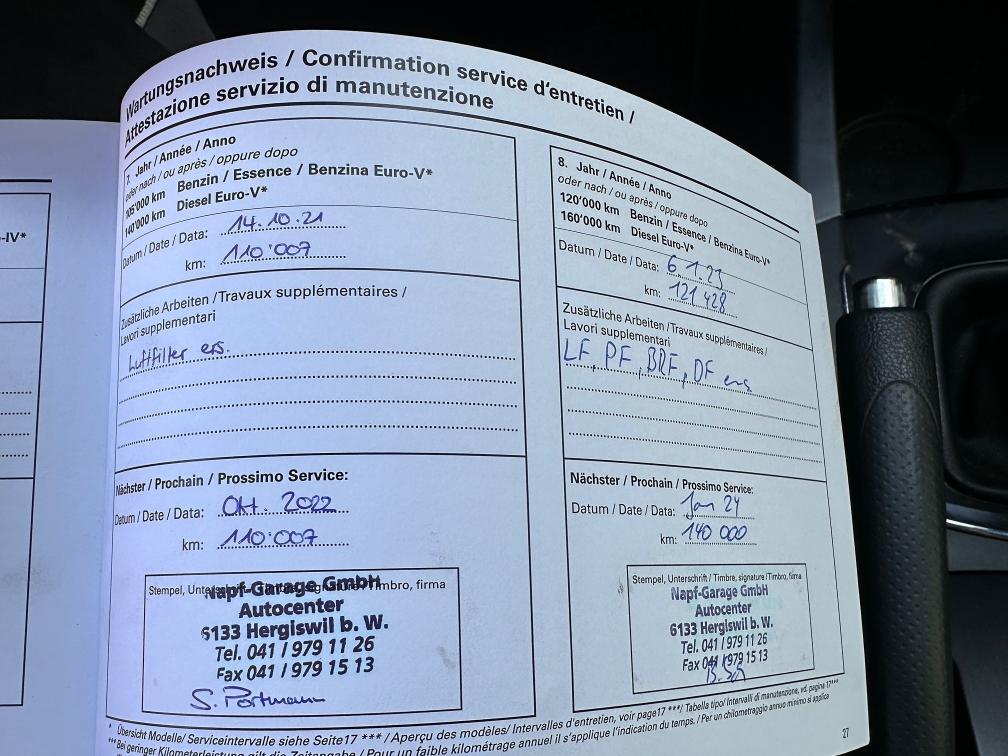 Wartungsnachweis / Confirmation service d'entretien /
Attestazione servizio di manutenzione
-IV*
7. Jahr / Année / Anno
oder nach / ou après / oppure dopo
105'000 km Benzin / Essence / Benzina Euro-V*
140'000 km Diesel Euro-V*
Datum / Date / Data: 14.10.21
km: 110'007
Zusätzliche Arbeiten / Travaux supplémentaires /
Lavori supplementari
Luftfilter ers.
Nächster / Prochain / Prossimo Service:
Datum / Date / Data: Okt. 2022
km: 110'007
Stempel, Unterschrift / Timbre, signature / Timbro, firma
Napf-Garage GmbH
Autocenter
6133 Hergiswil b. W.
Tel. 041 / 979 11 26
Fax 041 / 979 15 13
S. Portmann
8. Jahr / Année / Anno
oder nach / ou après / oppure dopo
120'000 km Benzin / Essence / Benzina Euro-V*
160'000 km Diesel Euro-V*
Datum / Date / Data: 6 1.23
km: 121 428
Zusätzliche Arbeiten / Travaux supplémentaires /
Lavori supplementari
LF, PF, BRF, DF ers
Nächster / Prochain / Prossimo Service:
Datum / Date / Data: Jan 24
km: 140 000
Stempel, Unterschrift / Timbre, signature / Timbro, firma
Napf-Garage GmbH
Autocenter
6133 Hergiswil b. W.
Tel. 041 / 979 11 26
Fax 041 / 979 15 13
* Übersicht Modelle/ Serviceintervalle siehe Seite17 *** / Aperçu des modèles/ Intervalles d'entretien, voir page17 ***/ Tabella tipo/ Intervalli di manutenzione, vd. pagina 17***
*** Bei geringer Kilometerleistung gilt die Zeitangabe / Pour un faible kilométrage annuel il s'applique l'indication du temps. / Per un chilometraggio annuo minimo si applica
27